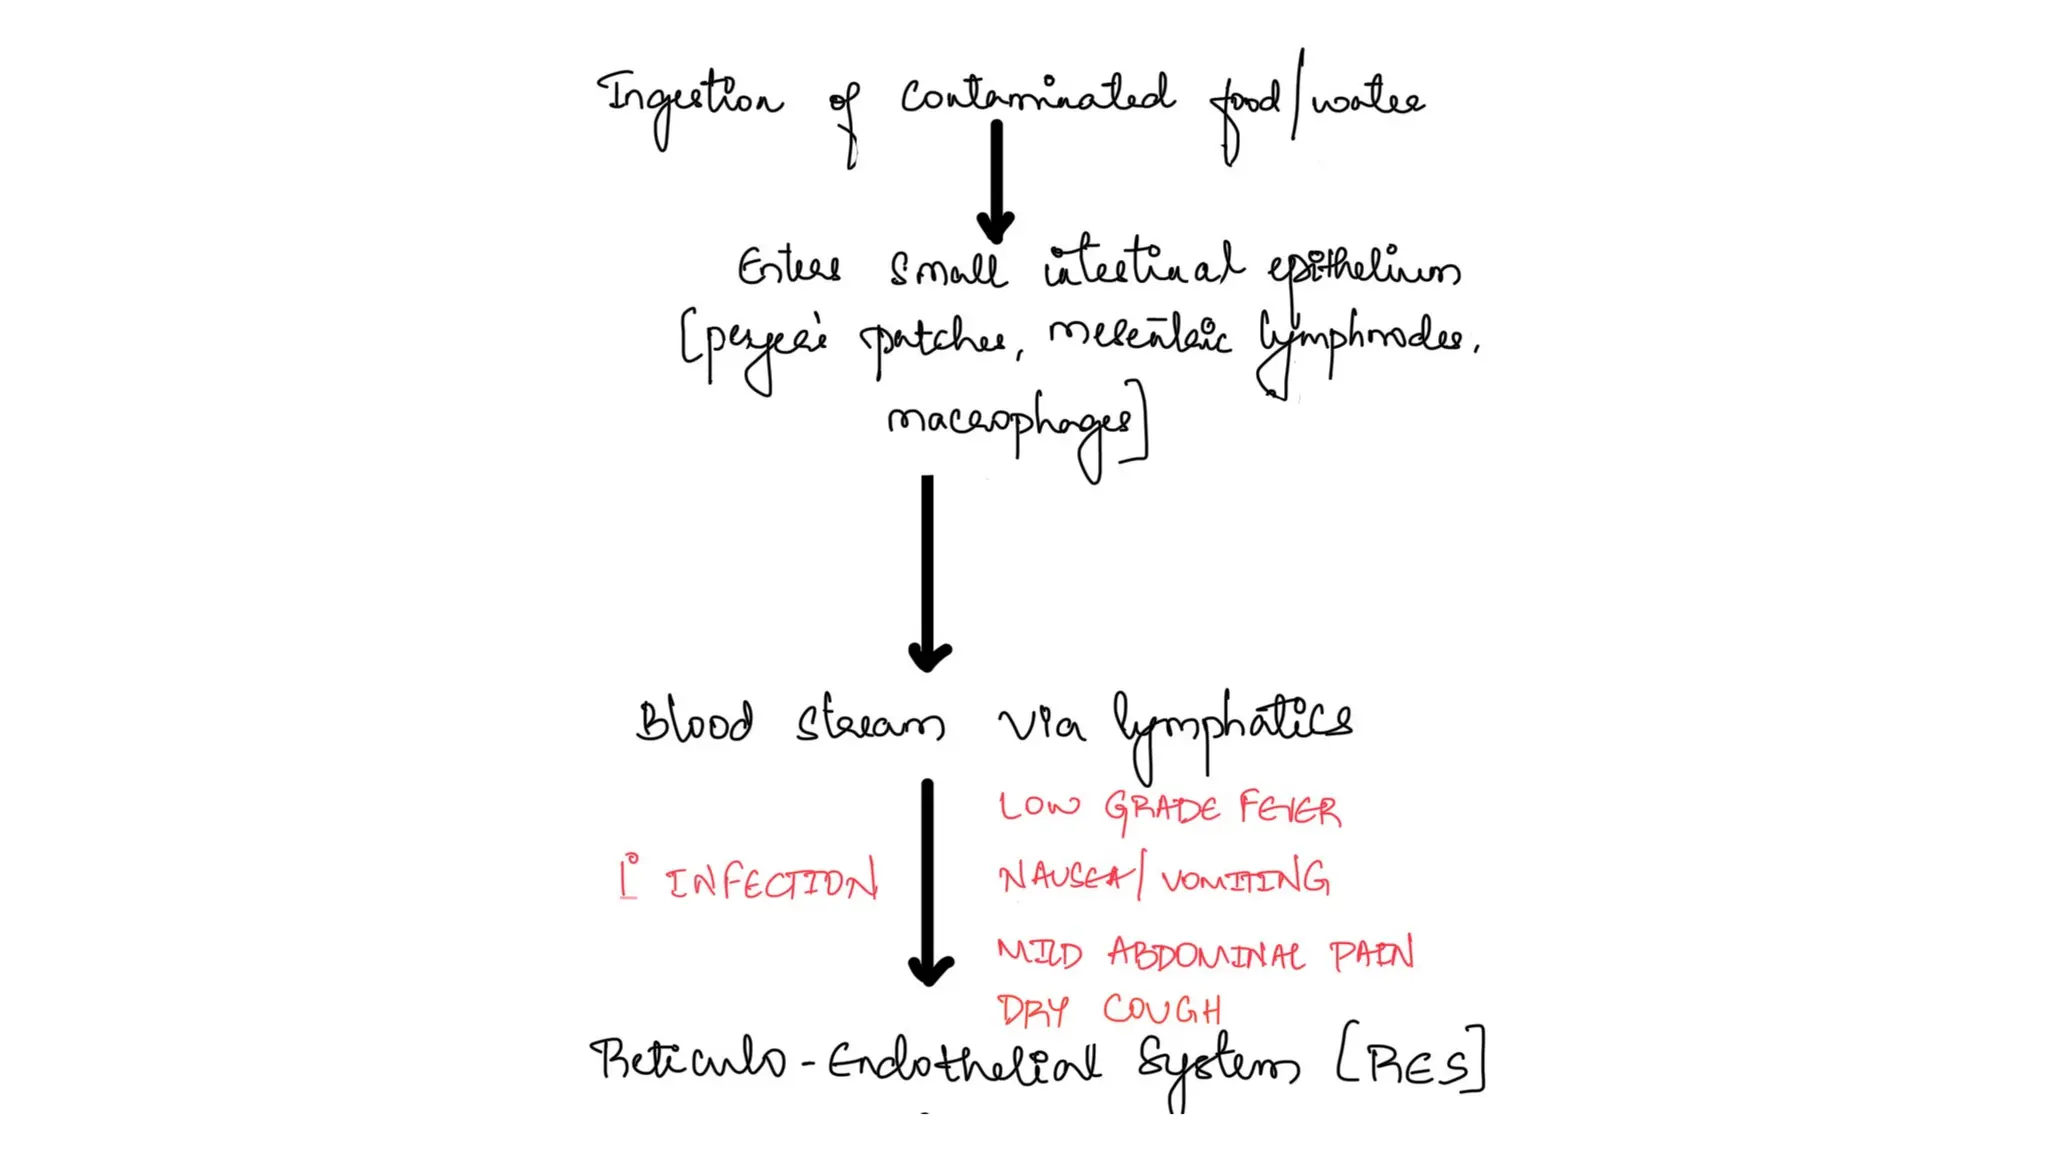 Ingestion of contaminated food/water
Enters small intestinal epithelium
[peyer's patches, mesenteric lymphnodes,
macrophages]
Blood stream via lymphatics
LOW GRADE FEVER
1° INFECTION
NAUSEA/VOMITING
MILD ABDOMINAL PAIN
DRY COUGH
Reticulo-Endothelial System [RES]